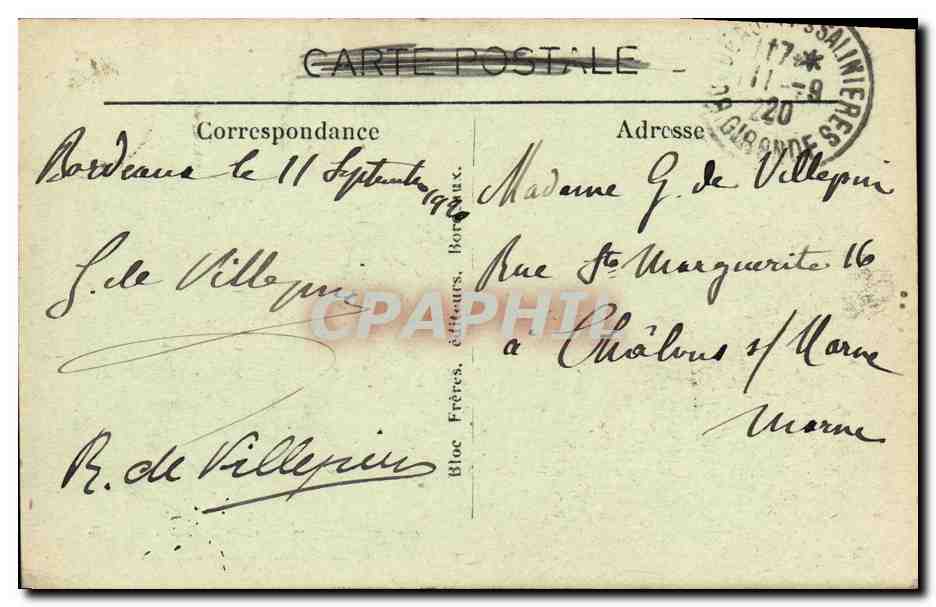 CARTE POSTALE
SALINIERES
17 *
11 - 9
20
GIRONDE
Correspondance
Adresse
Bordeaux le 11 Septembre 1920
G. de Villepin
R. de Villepin
Bloc Frères, éditeurs, Bordeaux.
Madame G. de Villepin
Rue Ste Marguerite 16
à Châlons s/ Marne
Marne
CPAPHIL